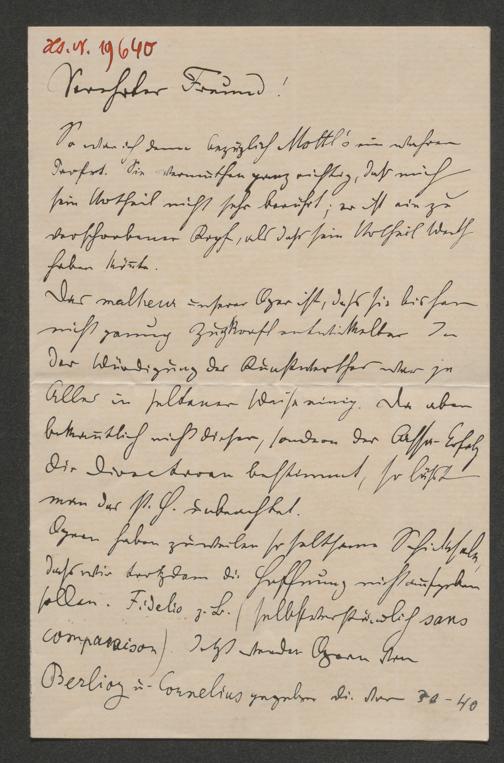 Hs. N. 19640
Verehrter Freund!
So war ich denn bezüglich Mottl's ein wahrer
Profet. Sie vermuthen ganz richtig, daß mich
sein Urtheil nicht sehr berührt; er ist ein zu
verschrobener Kopf, als daß sein Urtheil Werth
haben könnte.
Das malheur unserer Oper ist, daß sie bisher
nicht genug Zugkraft entwickelte. In
der Würdigung des Kunstwerthes war ja
Alles in seltener Weise einig. Da aber
bekanntlich nicht dieser, sondern der Cassa-Erfolg
die Directionen bestimmt, so läßt
man das st. H. unbeachtet.
Opern haben zuweilen so seltsame Schicksale,
daß wir trotzdem die Hoffnung nicht aufgeben
sollen. Fidelio z. B. (selbstverständlich sans
comparaison). Jetzt werden Opern von
Berlioz u. Cornelius gegeben die vor 30-40